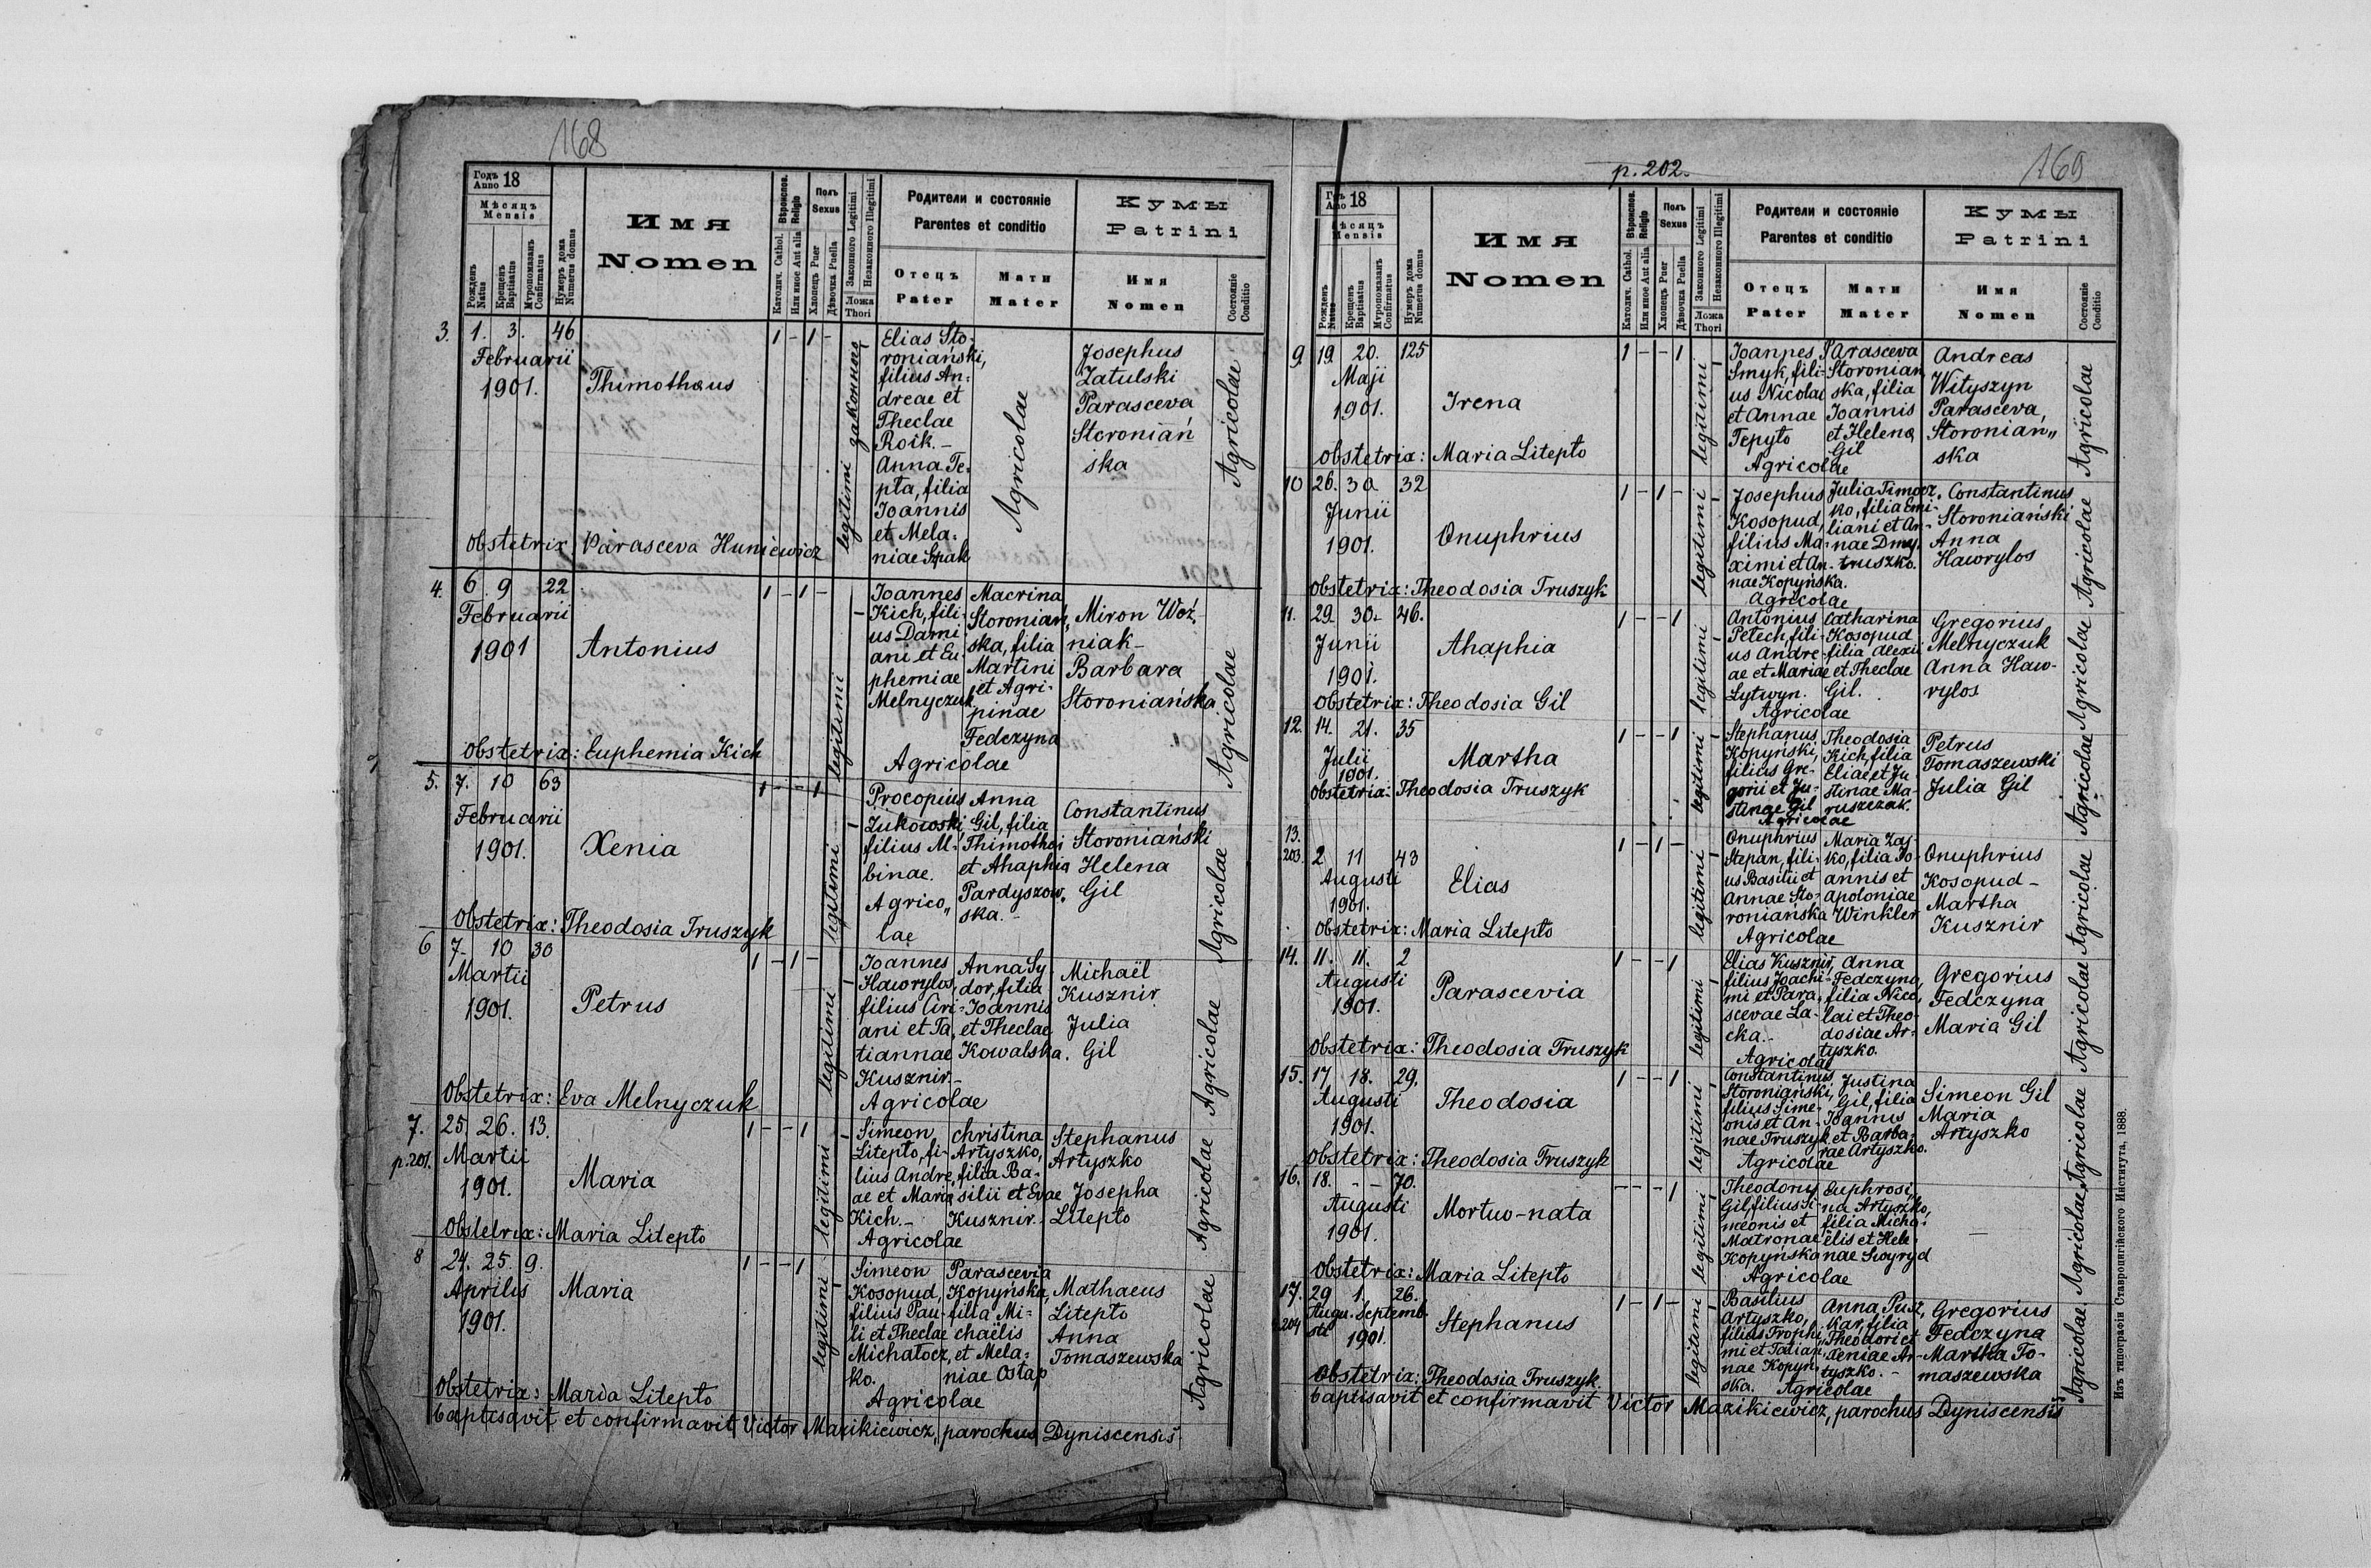 168
Годъ
Anno 18
Мѣсяцъ
Mensis
Рожденъ
Natus
Крещенъ
Baptisatus
Мѵропомазанъ
Confirmatus
Нумеръ дома
Numerus domus
Имя
Nomen
Вѣроиспов.
Religio
Католич. Cathol.
Или иное Aut alia
Полъ
Sexus
Хлопецъ Puer
Дѣвочка Puella
Законного Legitimi
Незаконного Illegitimi
Ложа
Thori
Родители и состояніе
Parentes et conditio
Отецъ
Pater
Мати
Mater
Кумы
Patrini
Имя
Nomen
Состояніе
Conditio
3. 1. 3. 46 1 - 1 -
Februarii
1901.
Thimothaus
legitimi
Elias Sto-
roniański,
filius An-
dreae et
Theclae
Roik. -
Anna Te-
pta, filia
Joannis
et Mela-
niae Spak
Agricolae
Josephus
Zatulski
Parasceva
Storoniań
ska
Agricolae
Obstetrix Parasceva Huniewicz
4. 6. 9 22 1 - 1 -
Februarii
1901
Antonius
legitimi
Joannes
Kich, fili-
us Dami-
ani et Eu-
phemiae
Melnyczuk
Macrina
Storoniań,
ska, filia
Martini
et Agri-
pinae
Fedczyna
Agricolae
Miron Woź-
niak -
Barbara
Storoniańska
Agricolae
Obstetrix: Euphemia Kich
5. 7. 10 63 1 - - 1
Februarii
1901.
Xenia
legitimi
Procopius
Żukowski,
filius Al-
binae.
Agrico„
lae
Anna
Gil, filia
Thimothei
et Ahaphia
Pardyszow„
ska. -
Constantinus
Storoniański
Helena
Gil
Agricolae
Obstetrix: Theodosia Truszyk
6 7. 10 30 1 - 1 -
Martii
1901.
Petrus
legitimi
Joannes
Hawrylos,
filius Ciri-
ani et Ta,
tiannae
Kusznir. -
Agricolae
Anna Sy-
dor, filia
Joannis
et Theclae
Kowalska.
Michaël
Kusznir
Julia
Gil
Agricolae
Obstetrix: Eva Melnyczuk
7. 25. 26. 13. 1 - - 1
p.201. Martii
1901.
Maria
legitimi
Simeon
Litepto, fi-
lius Andre,
ae et Maria
Kich. -
Agricolae
Christina
Artyszko,
filia Ba-
silii et Evae
Kusznir.
Stephanus
Artyszko
Josepha
Litepto
Agricolae
Obstetrix: Maria Litepto
8 24. 25. 9. 1 - - 1
Aprilis
1901.
Maria
legitimi
Simeon
Kosopud,
filius Pau-
li et Theclae
Michałocz,
ko.
Parascevia
Kopyńska,
filia Mi-
chaëlis
et Mela-
niae Ostap
Agricolae
Mathaeus
Litepto
Anna
Tomaszewska
Agricolae
Obstetrix: Maria Litepto
baptisavit et confirmavit Victor Mazikiewicz, parochus Dyniscensis
p. 202.
169
Годъ
Anno 18
Мѣсяцъ
Mensis
Рожденъ
Natus
Крещенъ
Baptisatus
Мѵропомазанъ
Confirmatus
Нумеръ дома
Numerus domus
Имя
Nomen
Вѣроиспов.
Religio
Католич. Cathol.
Или иное Aut alia
Полъ
Sexus
Хлопецъ Puer
Дѣвочка Puella
Законного Legitimi
Незаконного Illegitimi
Ложа
Thori
Родители и состояніе
Parentes et conditio
Отецъ
Pater
Мати
Mater
Кумы
Patrini
Имя
Nomen
Состояніе
Conditio
9. 19. 20. 125 1 - - 1
Maji
1901.
Irena
legitimi
Joannes
Smyk, fili-
us Nicolai
et Annae
Tepyto
Agricolae
Parasceva
Storonian
ska, filia
Joannis
et Helena
Gil
Andreas
Wityszyn
Parasceva,
Storonian„
ska
Agricolae
Obstetrix: Maria Litepto
10 26. 30 32 1 - 1 -
Junii
1901.
Onuphrius
legitimi
Josephus
Kosopud,
filius Ma-
ximi et An-
nae Kopyńska.
Agricolae
Julia Timocz,
ko, filia Emi-
liani et An-
nae Dmy,
truszko.
Constantinus
Storoniański
Anna
Hawrylos
Agricolae
Obstetrix: Theodosia Truszyk
11. 29. 30. 46. 1 - - 1
Junii
1901.
Ahaphia
legitimi
Antonius
Petech, fili-
us Andre-
ae et Mariae
Lytwyn.
Agricolae
Catharina
Kosopud
filia Alexii
et Theclae
Gil.
Gregorius
Melnyczuk
Anna Haw-
rylos
Agricolae
Obstetrix: Theodosia Gil
12. 14. 21. 35 1 - - 1
Julii
1901.
Martha
legitimi
Stephanus
Kopyński,
filius Gre-
gorii et Ju-
stinae Gil
Agricolae
Theodosia
Kich, filia
Eliae et Ju
stinae Ma-
ruszczak.
Petrus
Tomaszewski
Julia Gil
Agricolae
Obstetrix: Theodosia Truszyk
13.
203. 2 11 43 1 - 1 -
Augusti
1901.
Elias
legitimi
Onuphrius
Stepan, fili-
us Basilii et
Annae Sto-
roniańska
Agricolae
Maria Zaj-
ko, filia Jo-
annis et
Apoloniae
Winkler
Onuphrius
Kosopud -
Martha
Kusznir
Agricolae
Obstetrix: Maria Litepto
14. 11. 11. 2 1 - - 1
Augusti
1901.
Parascevia
legitimi
Elias Kusznir,
filius Joachi-
mi et Para,
scevae La-
cka. -
Agricolae
Anna
Fedczyna,
filia Nico,
lai et Theo-
dosiae Ar-
tyszko.
Gregorius
Fedczyna
Maria Gil
Agricolae
Obstetrix: Theodosia Truszyk
15. 17 18. 29. 1 - - 1
Augusti
1901.
Theodosia
legitimi
Constantinus
Storoniański,
filius Sime-
onis et An-
nae Truszyk
Agricolae
Justina
Gil, filia
Joannis
et Barba-
rae Artyszko.
Simeon Gil
Maria
Artyszko
Agricolae
Obstetrix: Theodosia Truszyk
16. 18. - - 70. - - - 1
Augusti
1901.
Mortuo-nata
legitimi
Gil, filius Si-
meonis et
Matronae
Kopyńska
Agricolae
Euphrosi„
na Artyszko,
filia Micha-
elis et Hele-
nae Swyryd
Agricolae
Obstetrix: Maria Litepto
17. 29 1. 26. 1 - 1 -
204 Augu- Septemb.
sti 1901.
Stephanus
legitimi
Basilius
Artyszko,
filius Trophi,
mi et Tatian,
nae Kopyn-
ska.
Agricolae
Anna Pusz,
kar, filia
Theodori et
Xeniae Ar-
tyszko. -
Gregorius
Fedczyna
Martha To-
maszewska
Agricolae
Obstetrix: Theodosia Truszyk
baptisavit et confirmavit Victor Mazikiewicz, parochus Dyniscensis
Изъ типографіи Ставропигійского Института, 1888.